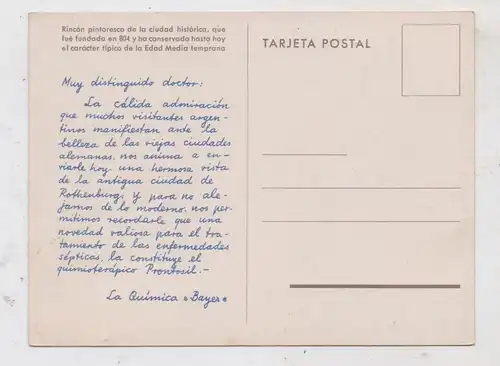 Rincón pintoresco de la ciudad histórica, que
fué fundada en 804 y ha conservado hasta hoy
el carácter típico de la Edad Media temprana
TARJETA POSTAL
Muy distinguido doctor:
La cálida admiración
que muchos visitantes argen-
tinos manifiestan ante la
belleza de las viejas ciudades
alemanas, nos anima a en-
viarle hoy una hermosa vista
de la antigua ciudad de
Rothenburg; y para no ale-
jarnos de lo moderno, nos per-
mitimos recordarle que una
novedad valiosa para el tra-
tamiento de las enfermedades
sépticas, la constituye el
quimioterápico Prontosil.-
La Química "Bayer"